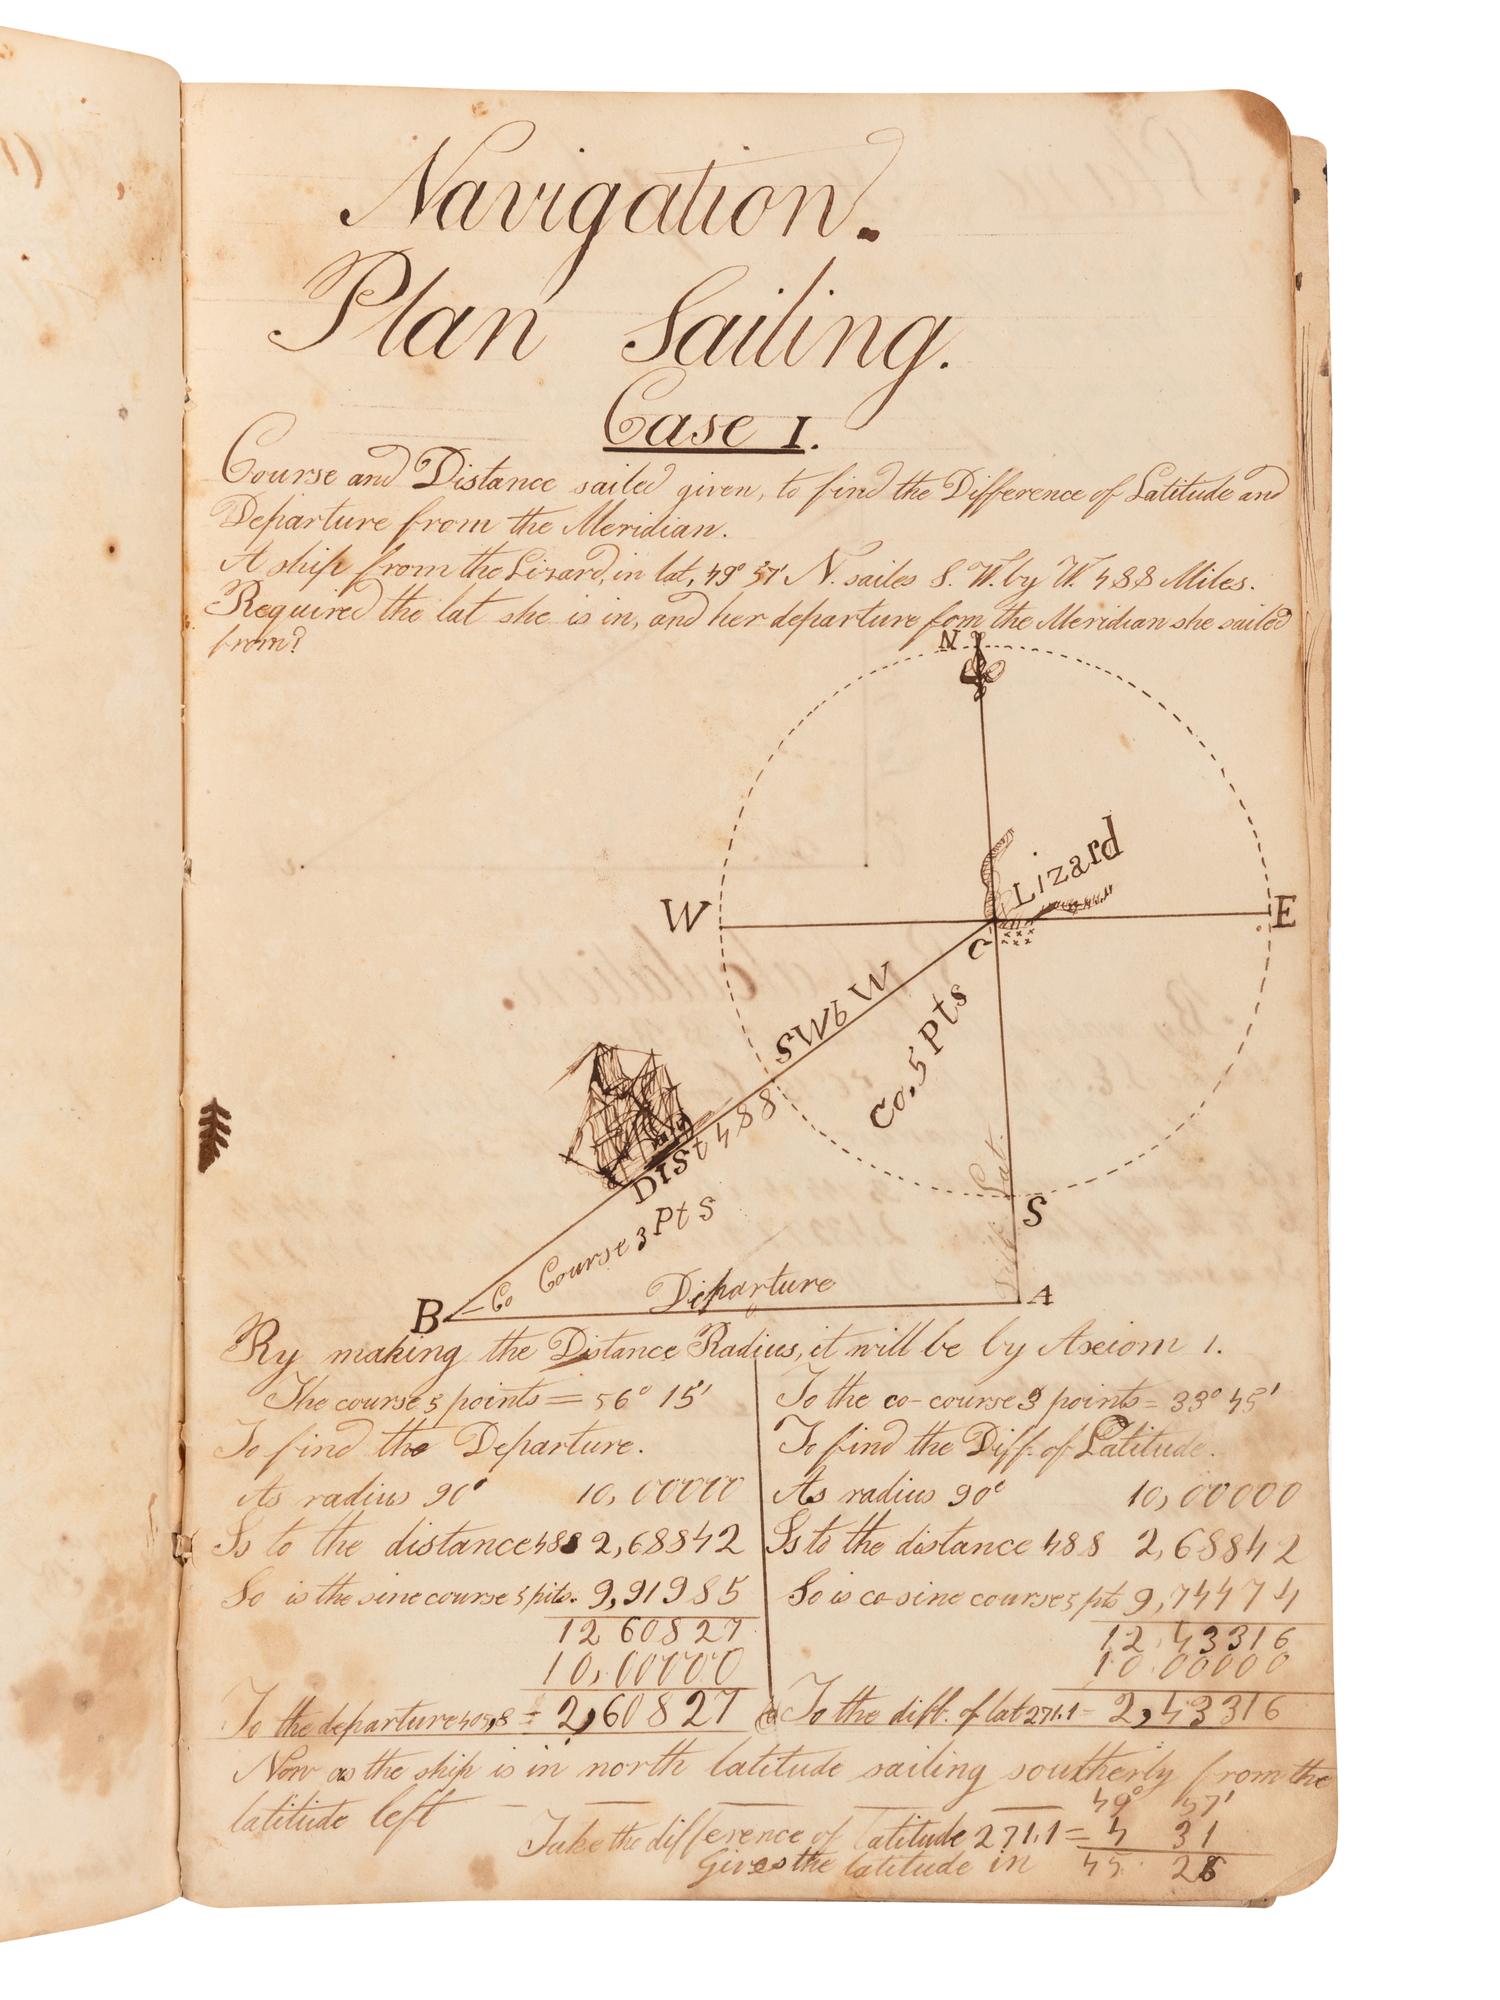 Navigation.
Plan Sailing.
Case 1.
Course and Distance sailed given, to find the Difference of Latitude and
Departure from the Meridian.
A ship from the Lizard, in lat, 49° 57' N. sailes S. W. by W. 488 Miles.
Required the lat she is in, and her departure fom the Meridian she sailed
from?
N
Lizard
W
E
C
SWbW
Co. 5 Pts
Dist 488
Diff Lat.
S
Course 3 Pts
Co
Departure
B
A
By making the Distance Radius, it will be by Axiom 1.
The course 5 points = 56° 15'
To find the Departure.
As radius 90° 10,00000
Is to the distance 488 2,68842
So is the sine course 5 pits. 9,91985
12 60827
10,00000
To the departure 405,8 = 2,60827
To the co-course 3 points = 33° 45'
To find the Diff. of Latitude.
As radius 90° 10,00000
Is to the distance 488 2,68842
So is co-sine course 5 pts 9,74474
12,43316
10.00000
To the diff. of lat 271.1 = 2,43316
Now as the ship is in north latitude sailing southerly from the
latitude left 49° 57'
Take the difference of latitude 271.1 = 4 31
Gives the latitude in 45 26